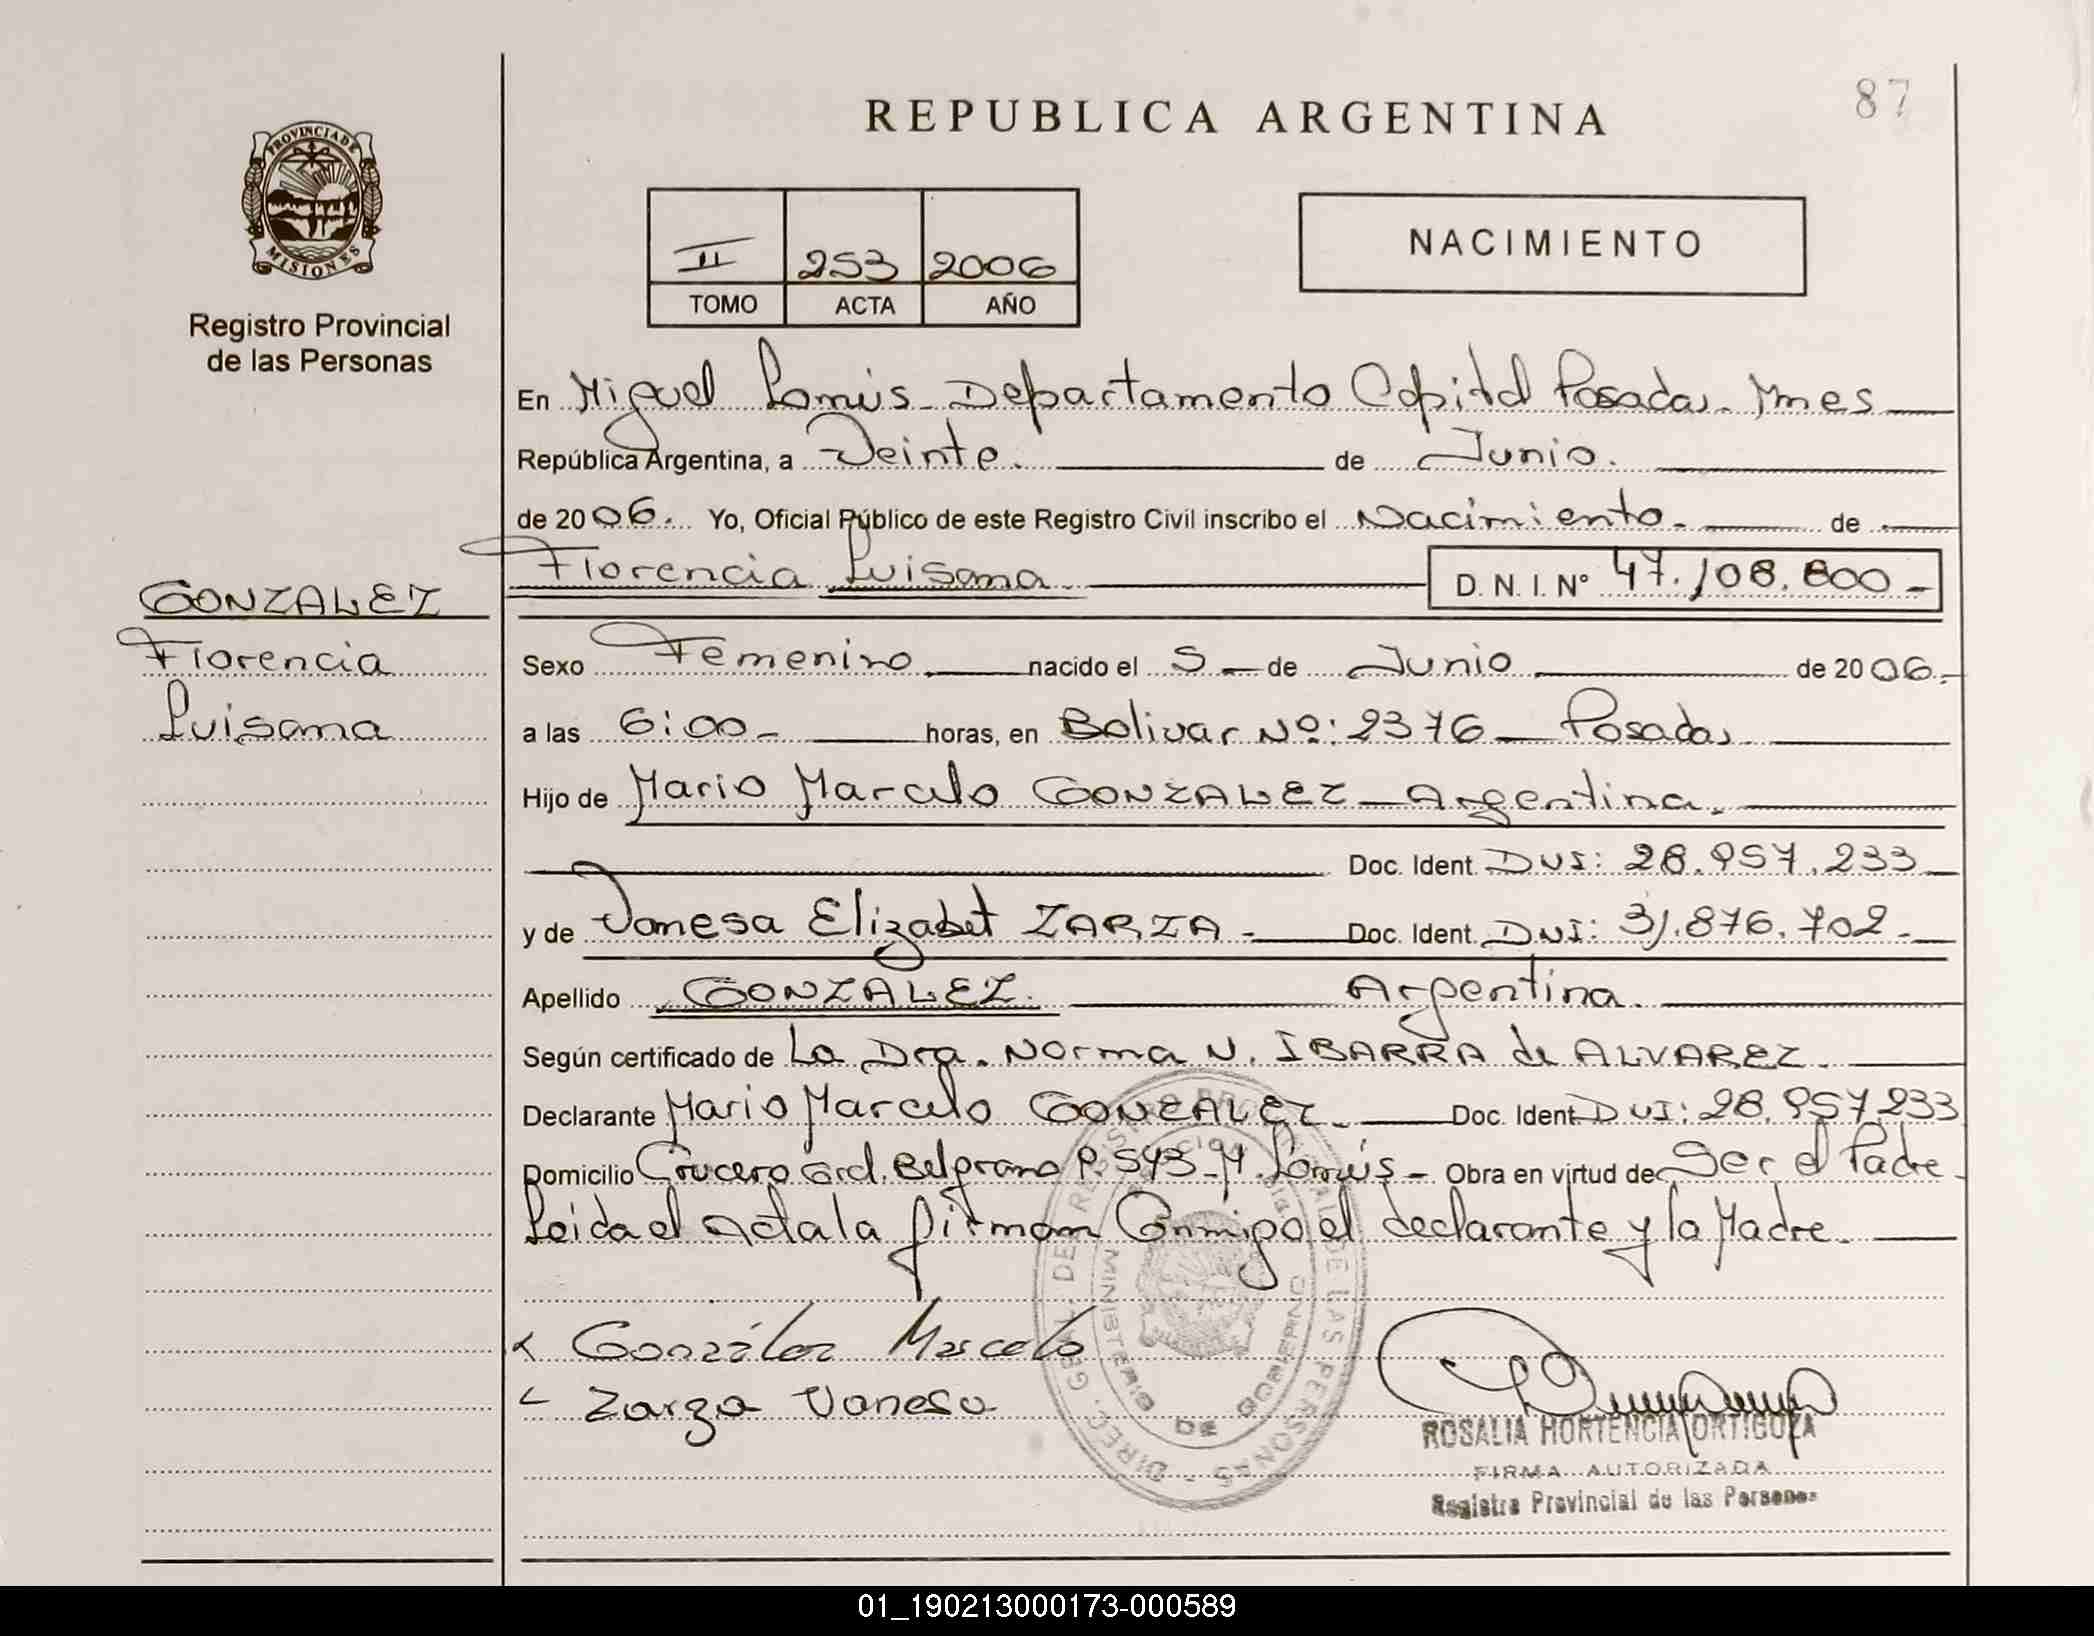 87
REPUBLICA ARGENTINA
PROVINCIA DE
MISIONES
Registro Provincial
de las Personas
II 253 2006
TOMO ACTA AÑO
NACIMIENTO
En Miguel Lanús - Departamento Capital Posadas - Mnes
República Argentina, a Veinte. de Junio.
de 2006. Yo, Oficial Público de este Registro Civil inscribo el Nacimiento. de
Florencia Luisana D. N. I. Nº 47.108.800 -
GONZALEZ
Florencia
Luisana
Sexo Femenino nacido el 5 - de Junio de 2006.-
a las 6:00 - horas, en Bolivar Nº: 2376 - Posadas
Hijo de Mario Marcelo GONZALEZ - Argentina.
Doc. Ident. DNI: 28.957.233
y de Vanesa Elizabet ZARZA - Doc. Ident. DNI: 31.876.702 -
Apellido GONZALEZ. Argentina.
Según certificado de La Dra. Norma N. IBARRA de ALVAREZ.
Declarante Mario Marcelo GONZALEZ. Doc. Ident. DNI: 28.957.233
Domicilio Crucero Gral. Belgrano P. 543 - M. Lanús - Obra en virtud de Ser el Padre -
Leida el Acta la firman Conmigo el declarante y la Madre.
González Marcelo
Zarza Vanesa
DIREC. GRAL. DE REGISTRO PROVINCIAL DE LAS PERSONAS -
MINISTERIO DE GOBIERNO
ROSALIA HORTENCIA ORTIGOZA
FIRMA AUTORIZADA
Registro Provincial de las Personas
01_190213000173-000589